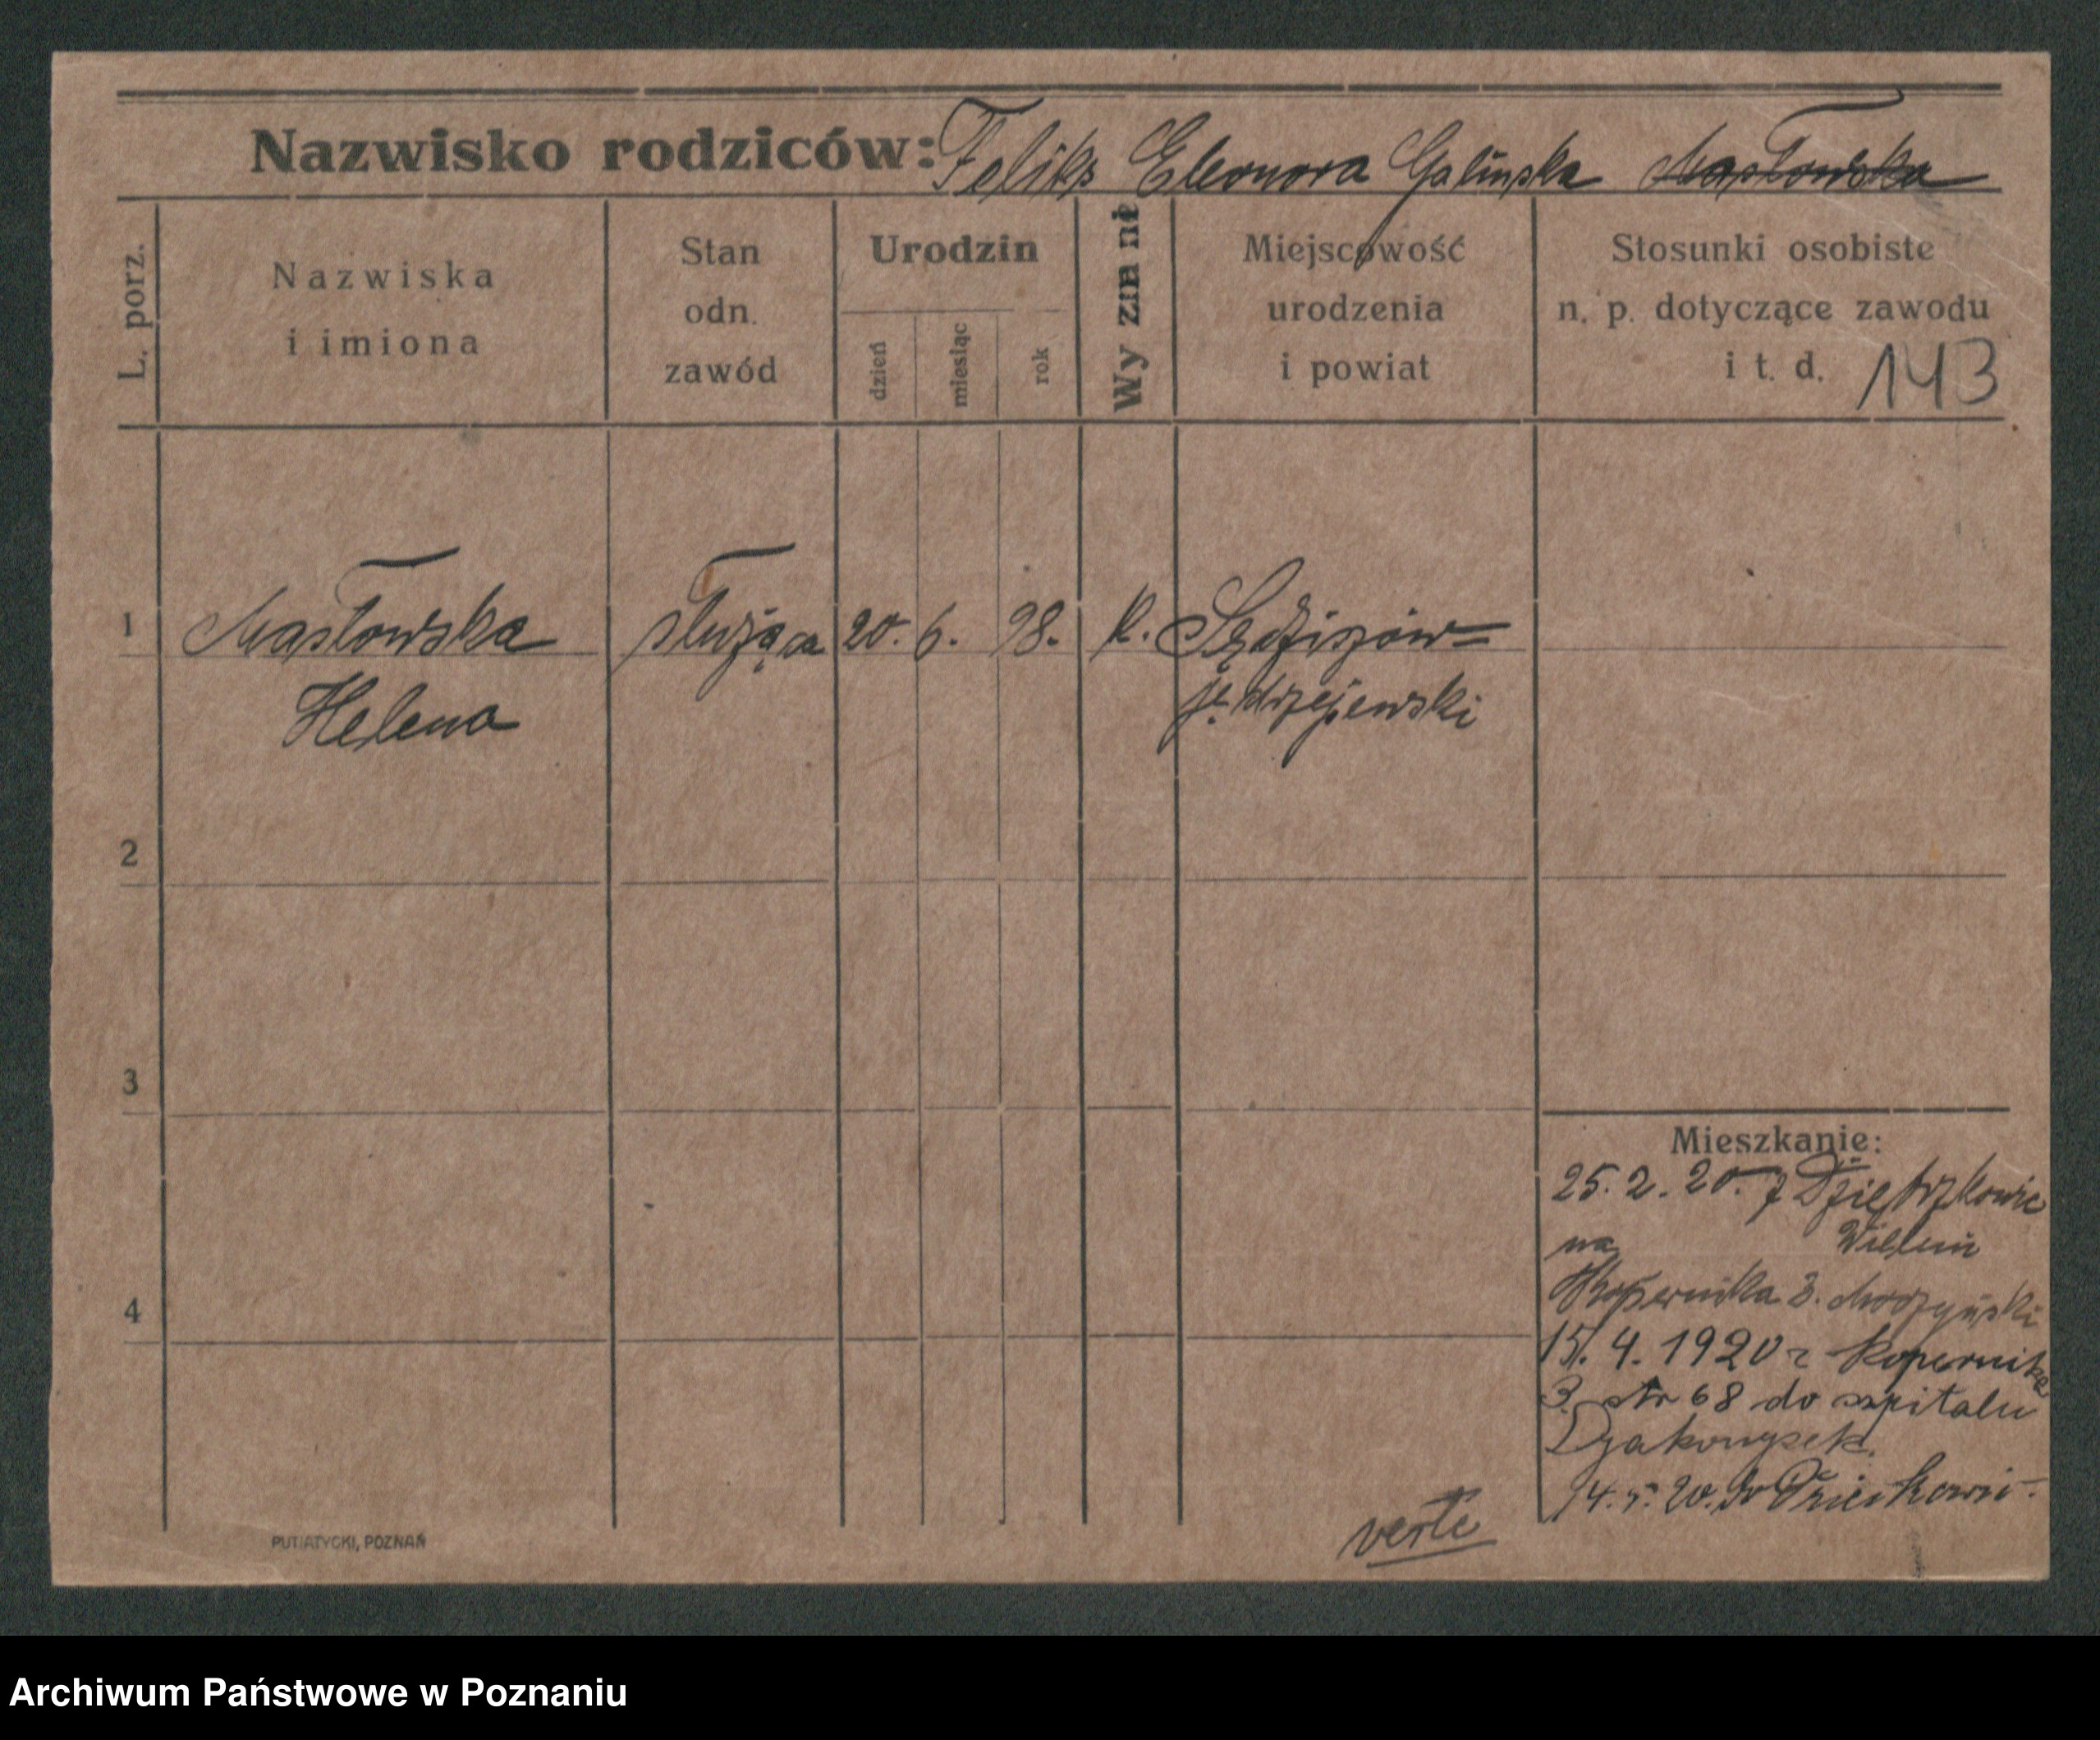 Nazwisko rodziców: Feliks Eleonora Galinska Masłowska
L. porz.
Nazwiska
i imiona
Stan
odn.
zawód
Urodzin
dzień
miesiąc
rok
Wyznanie
Miejscowość
urodzenia
i powiat
Stosunki osobiste
n. p. dotyczące zawodu
i t. d. 143
1 Masłowska służąca 20. 6. 98. k. Sędziszów=
Helena jędrzejewski
2
3
4
Mieszkanie:
25. 2. 20. z
na Wieluń
Kopernika 3.
15. 4. 1920 r Kopernika
3. Nr 68 do szpitala
Dyakonysek.
14. 5. 20.
verte
PUTIATYCKI, POZNAŃ
Archiwum Państwowe w Poznaniu